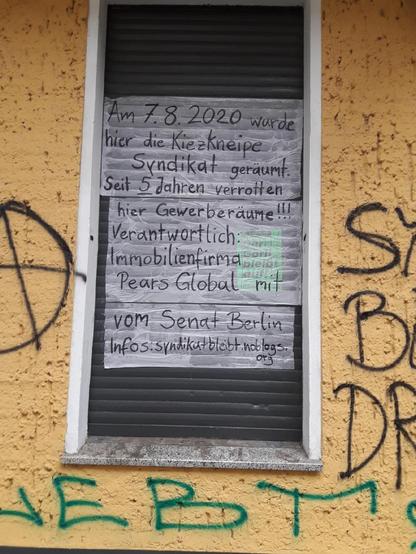 Am 7.8.2020 wurde
hier die Kiezkneipe
Syndikat geräumt.
Seit 5 Jahren verrotten
hier Gewerberäume!!!
Verantwortlich:
Immobilienfirma
Pears Global mit
vom Senat Berlin
Infos: syndikatbleibt.noblogs.
org
SY
B
DR
EBT